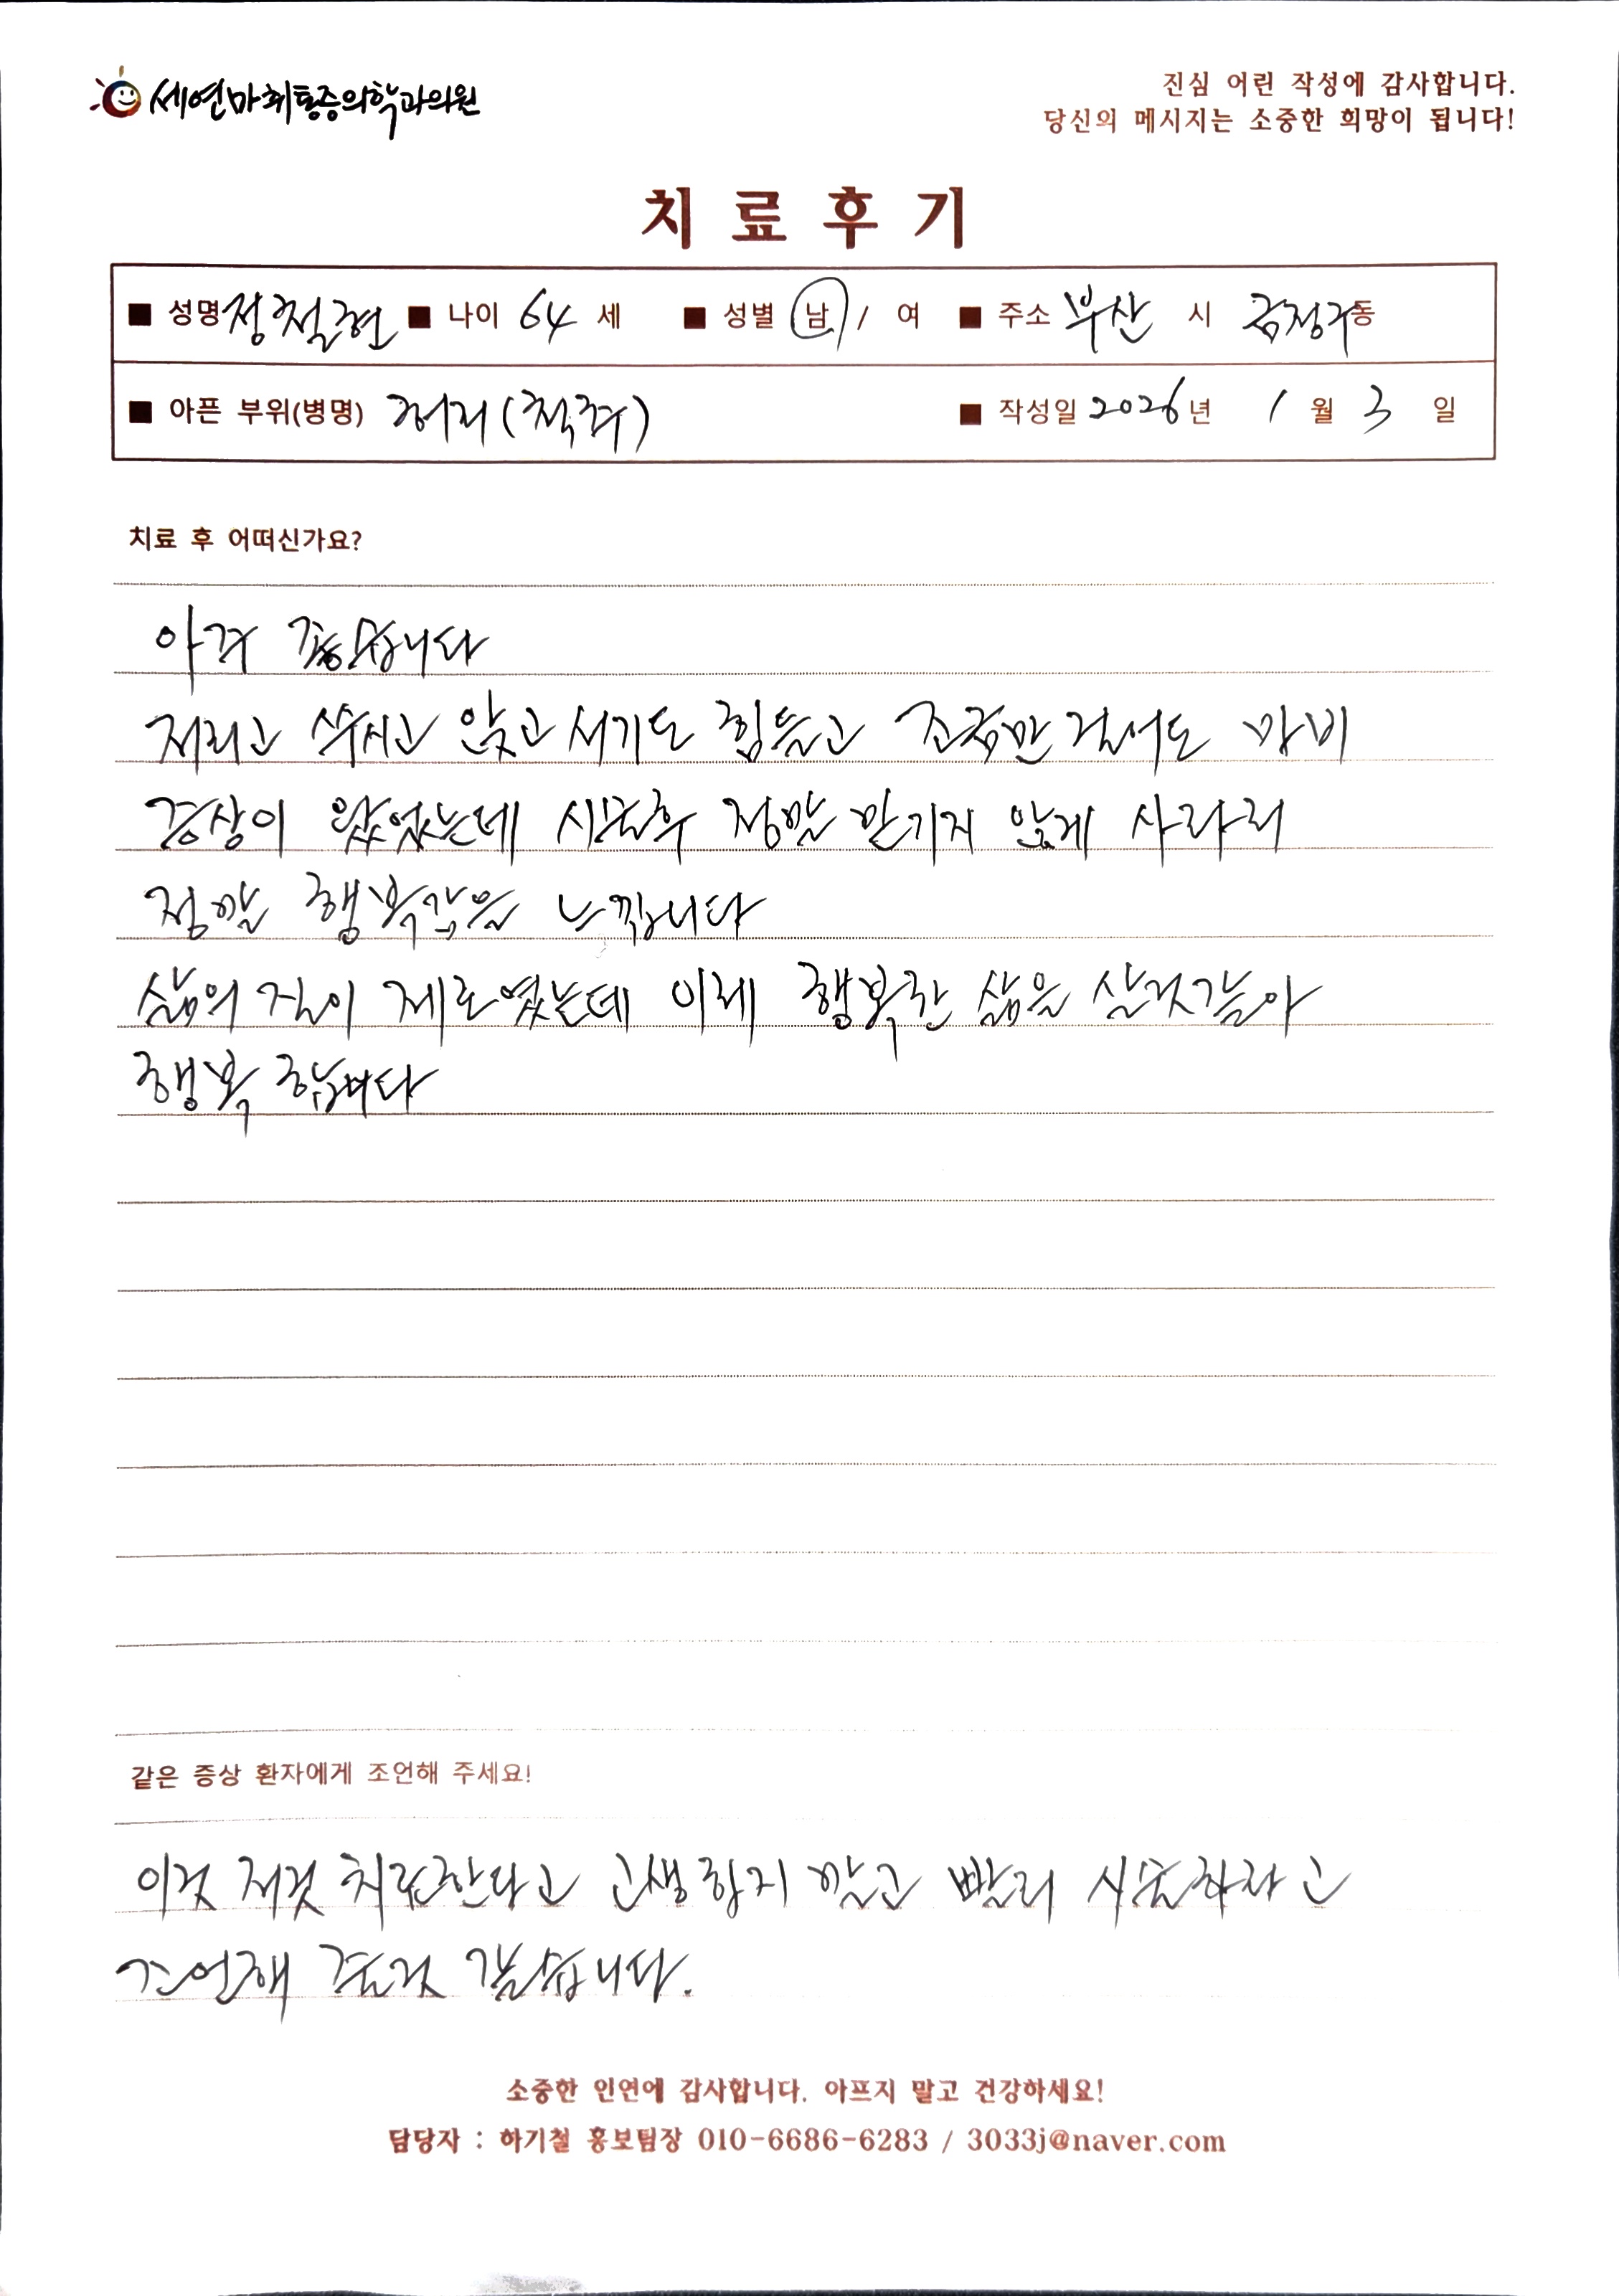 세연마취통증의학과의원
진심 어린 작성에 감사합니다.
당신의 메시지는 소중한 희망이 됩니다!
치료후기
■ 성명 정철현 ■ 나이 64 세 ■ 성별 남 / 여 ■ 주소 부산 시 금정구 동
■ 아픈 부위(병명) 허리(척추) ■ 작성일 2026년 1 월 3 일
치료 후 어떠신가요?
아주 좋습니다
저리고 쑤시고 앉고 서기도 힘들고 조금만 걸어도 마비
증상이 왔었는데 시술후 정말 믿기지 않게 사라져
정말 행복감을 느낍니다
삶의 질이 제로였는데 이제 행복한 삶을 살것같아
행복 합니다
같은 증상 환자에게 조언해 주세요!
이것 저것 치료한다고 고생하지 말고 빨리 시술하라고
조언해 줄것 같습니다.
소중한 인연에 감사합니다. 아프지 말고 건강하세요!
담당자 : 하기철 홍보팀장 010-6686-6283 / 3033j@naver.com